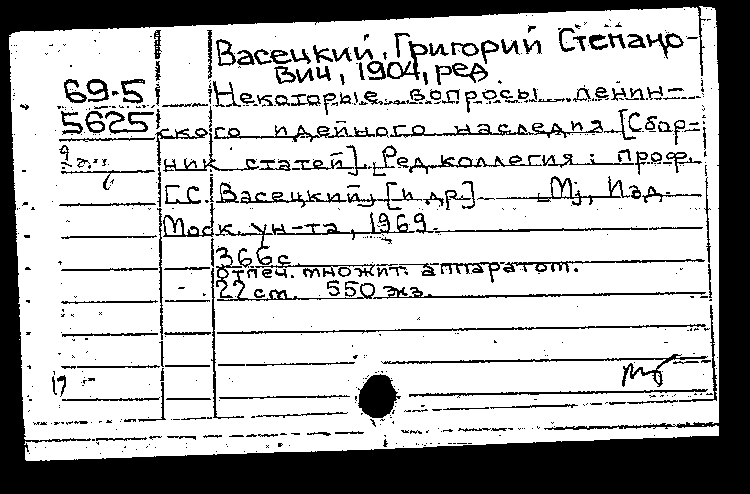 Васецкий, Григорий Степано-
вич, 1904, ред.
69-5 Некоторые вопросы ленин-
5625 ского идейного наследия. [Сбор-
ник статей]. Ред.коллегия: проф.
Г.С. Васецкий, [и др.] М., Изд.
Моск. ун-та, 1969.
366 с.
отпеч. множит. аппаратом.
22 см. 550 экз.
17